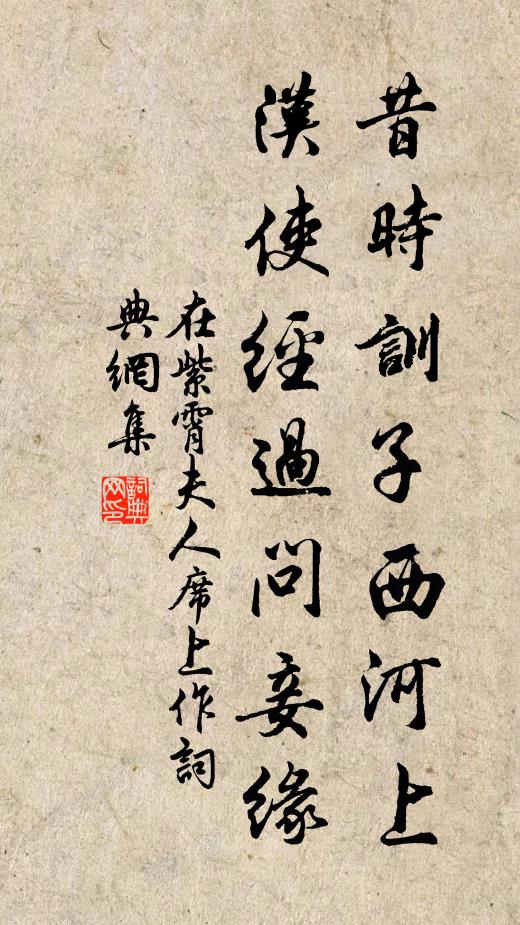 昔時訓子西河上
漢使經過問妾緣
在紫霄夫人席上作詞
典網集
詞典
网印